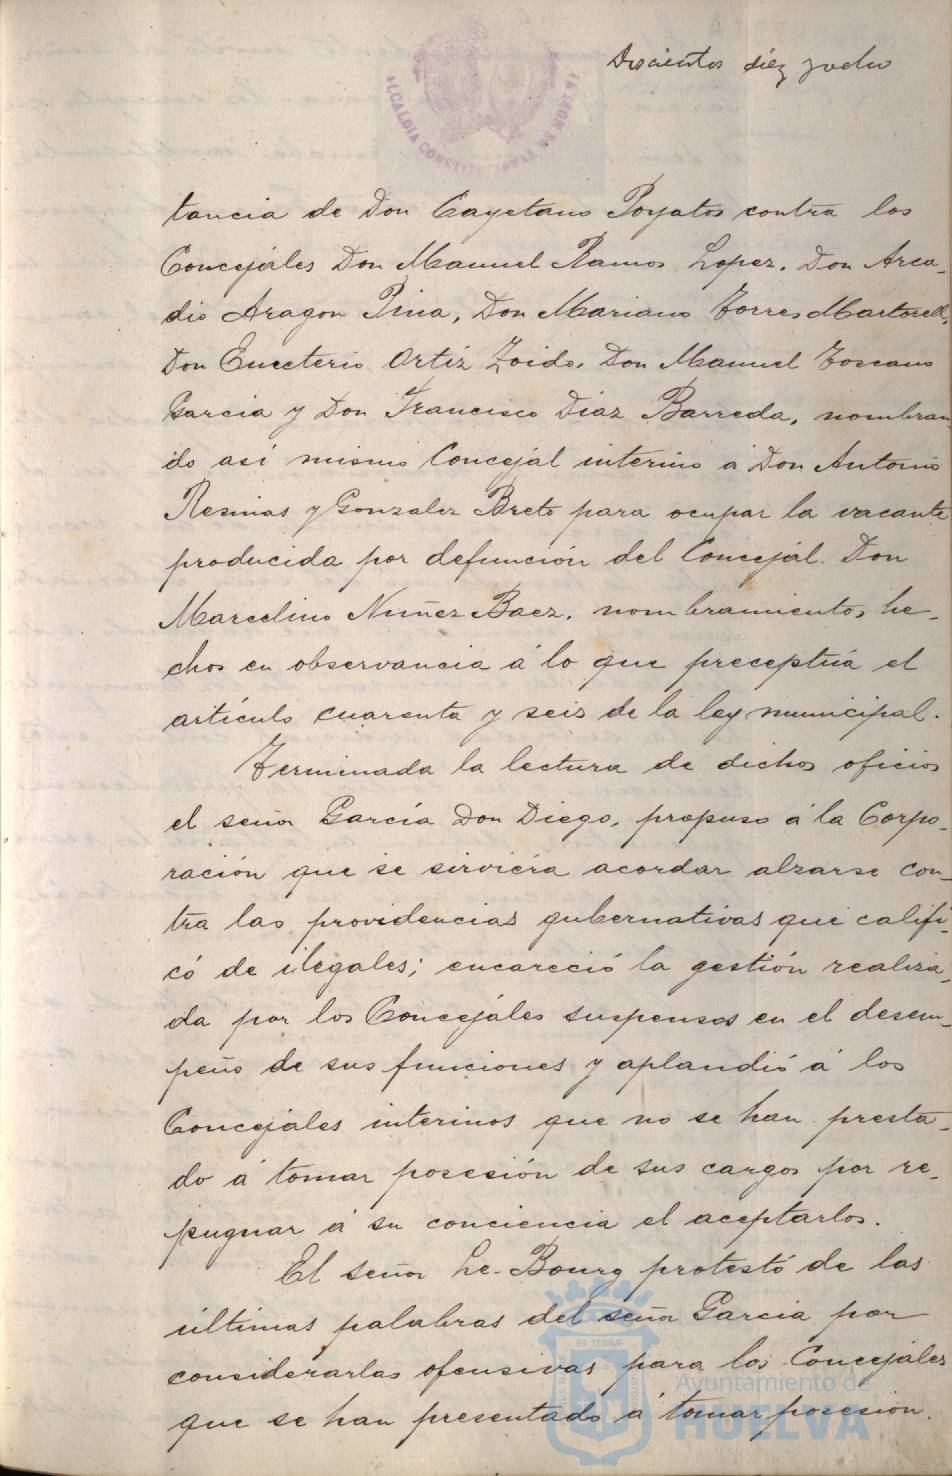 Doscientos diez y ocho
ALCALDIA CONSTITUCIONAL DE HUELVA
tancia de Don Cayetano Poyatos contra los
Concejáles Don Manuel Ramos Lopez. Don Arca-
dio Aragon Pina, Don Mariano Torres Martorell,
Don Eucterio Ortiz Zoido, Don Manuel Toscano
Garcia y Don Francisco Diaz Barreda, nombran
do así mismo Concejál interino á Don Antonio
Resinas y Gonzalez Breto para ocupar la vacante
producida por defunción del Concejál Don
Marcelino Nuñez Baez, nombramientos he-
chos en observancia á lo que preceptúa el
artículo cuarenta y seis de la ley municipal.
Terminada la lectura de dichos oficios
el señor García Don Diego, propuso á la Corpo-
ración que se sirviera acordar alzarse con-
tra las providencias gubernativas que califi-
có de ilegales; encareció la gestión realiza-
da por los Concejáles suspensos en el desem-
peño de sus funciones y aplaudió á los
Concejáles interinos que no se han presta-
do á tomar posesión de sus cargos por re-
pugnar á su conciencia el aceptarlos.
El señor Le-Bourg protestó de las
últimas palabras del señor Garcia por
considerarlas ofensivas para los Concejáles
que se han presentado á tomar posesión.
ET TERRÆ
Ayuntamiento de
HUELVA